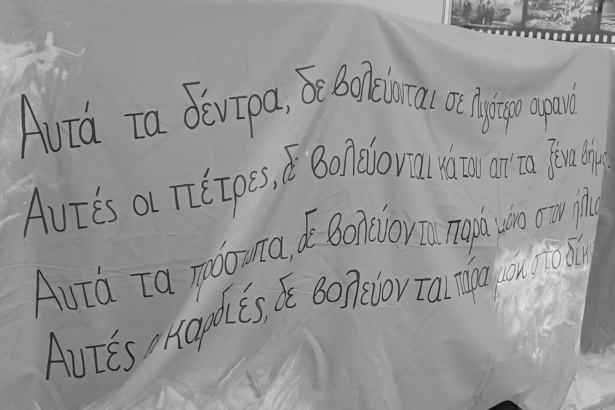 Αυτά τα δέντρα, δε βολεύονται σε λιγότερο ουρανό.
Αυτές οι πέτρες, δε βολεύονται κάτου απ' τα ξένα βήμ
Αυτά τα πρόσωπα, δε βολεύονται παρά μόνο στον ήλιο
Αυτές οι καρδιές, δε βολεύονται πάρα μόν στο δίκ